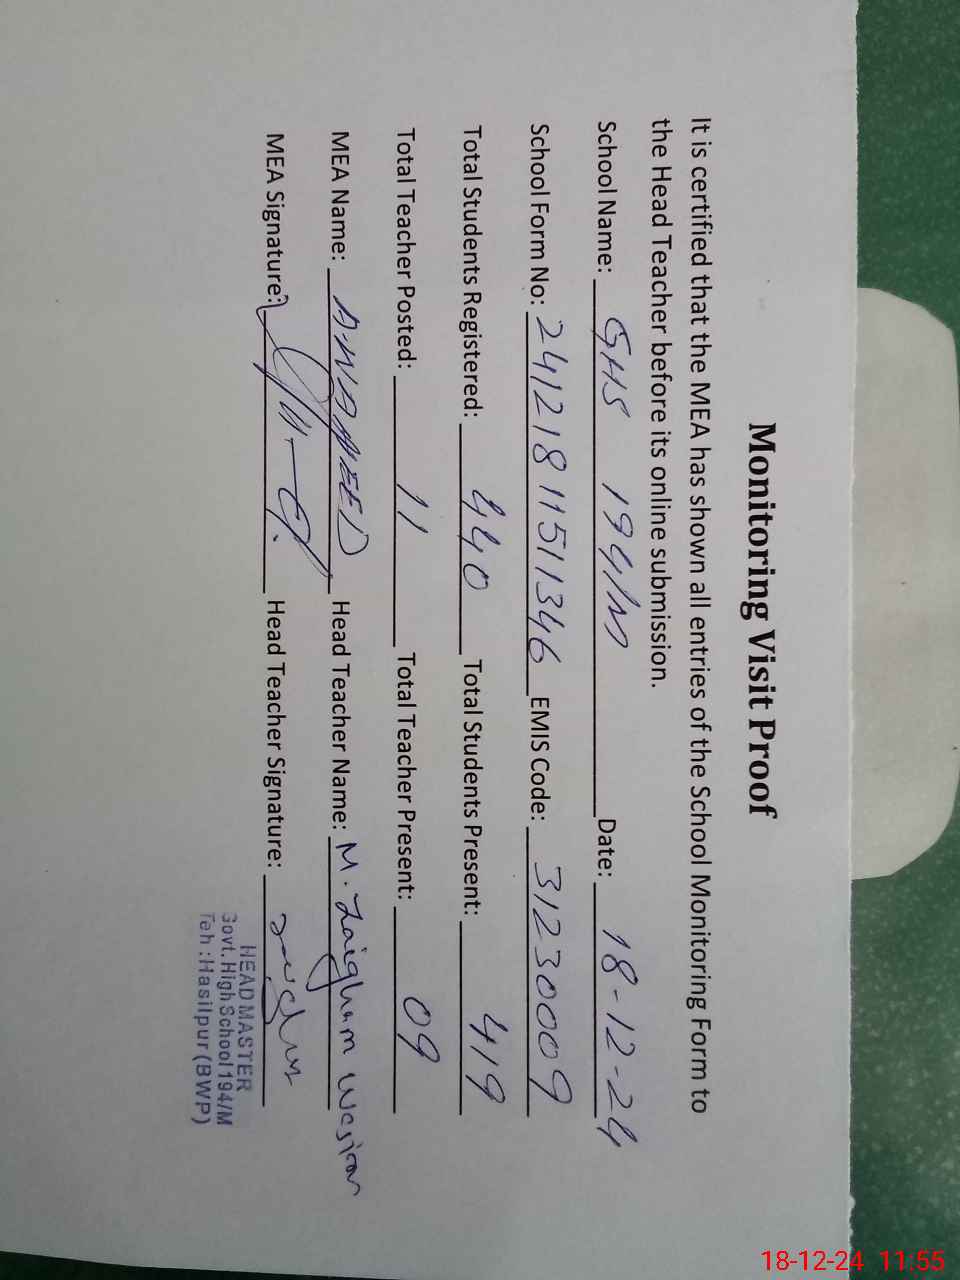 Monitoring Visit Proof
It is certified that the MEA has shown all entries of the School Monitoring Form to
the Head Teacher before its online submission.
School Name: GHS 194/M Date: 18-12-24
School Form No: 24121811511346 EMIS Code: 31230009
Total Students Registered: 440 Total Students Present: 419
Total Teacher Posted: 11 Total Teacher Present: 09
MEA Name: Head Teacher Name: M. Zaigham
MEA Signature: Head Teacher Signature:
HEAD MASTER
Govt. High School 194/M
Teh: Hasilpur (BWP)
18-12-24 11:55